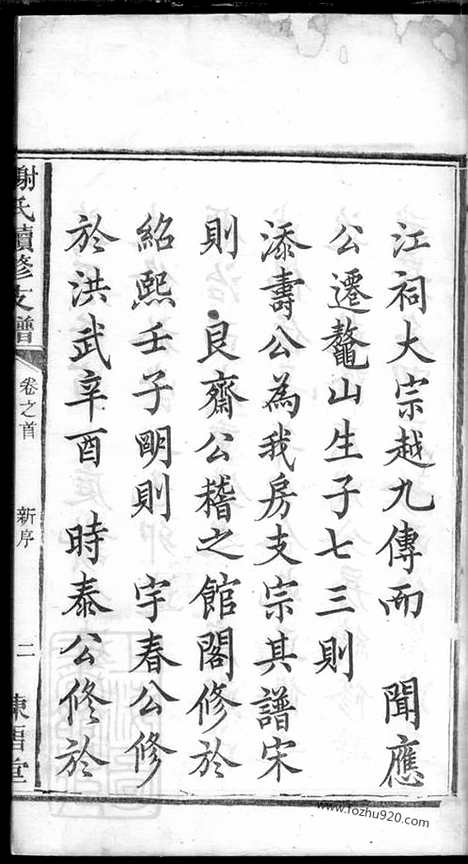 江祠大宗越九傳而　聞應
公遷鼇山生子七三則
添壽公為我房支宗其譜宋
則　良齋公稽之館閣修於
紹熙壬子明則　宇春公修
於洪武辛酉　時泰公修於
謝氏續修支譜　卷之首　新序　二
www.fozhu920.com